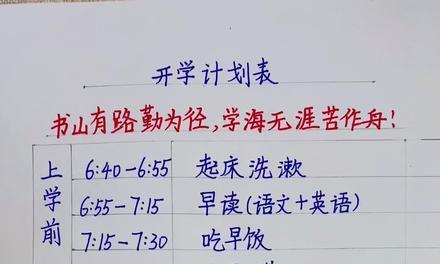 开学计划表
书山有路勤为径,学海无涯苦作舟!
上学前
6:40-6:55 起床洗漱
6:55-7:15 早读(语文+英语)
7:15-7:30 吃早饭